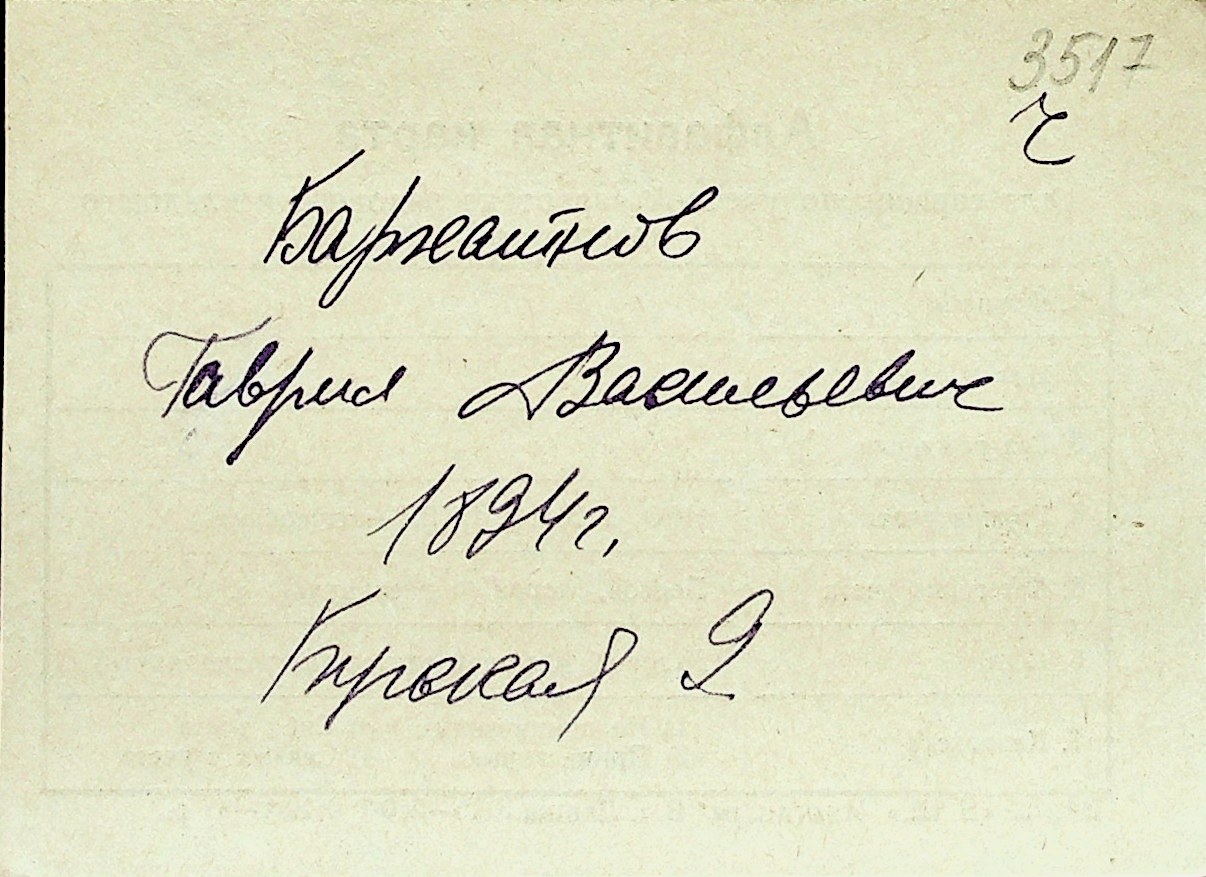 3517
ч
Баржатнов
Гаврил Васильевич
1894г.
Бирская 2